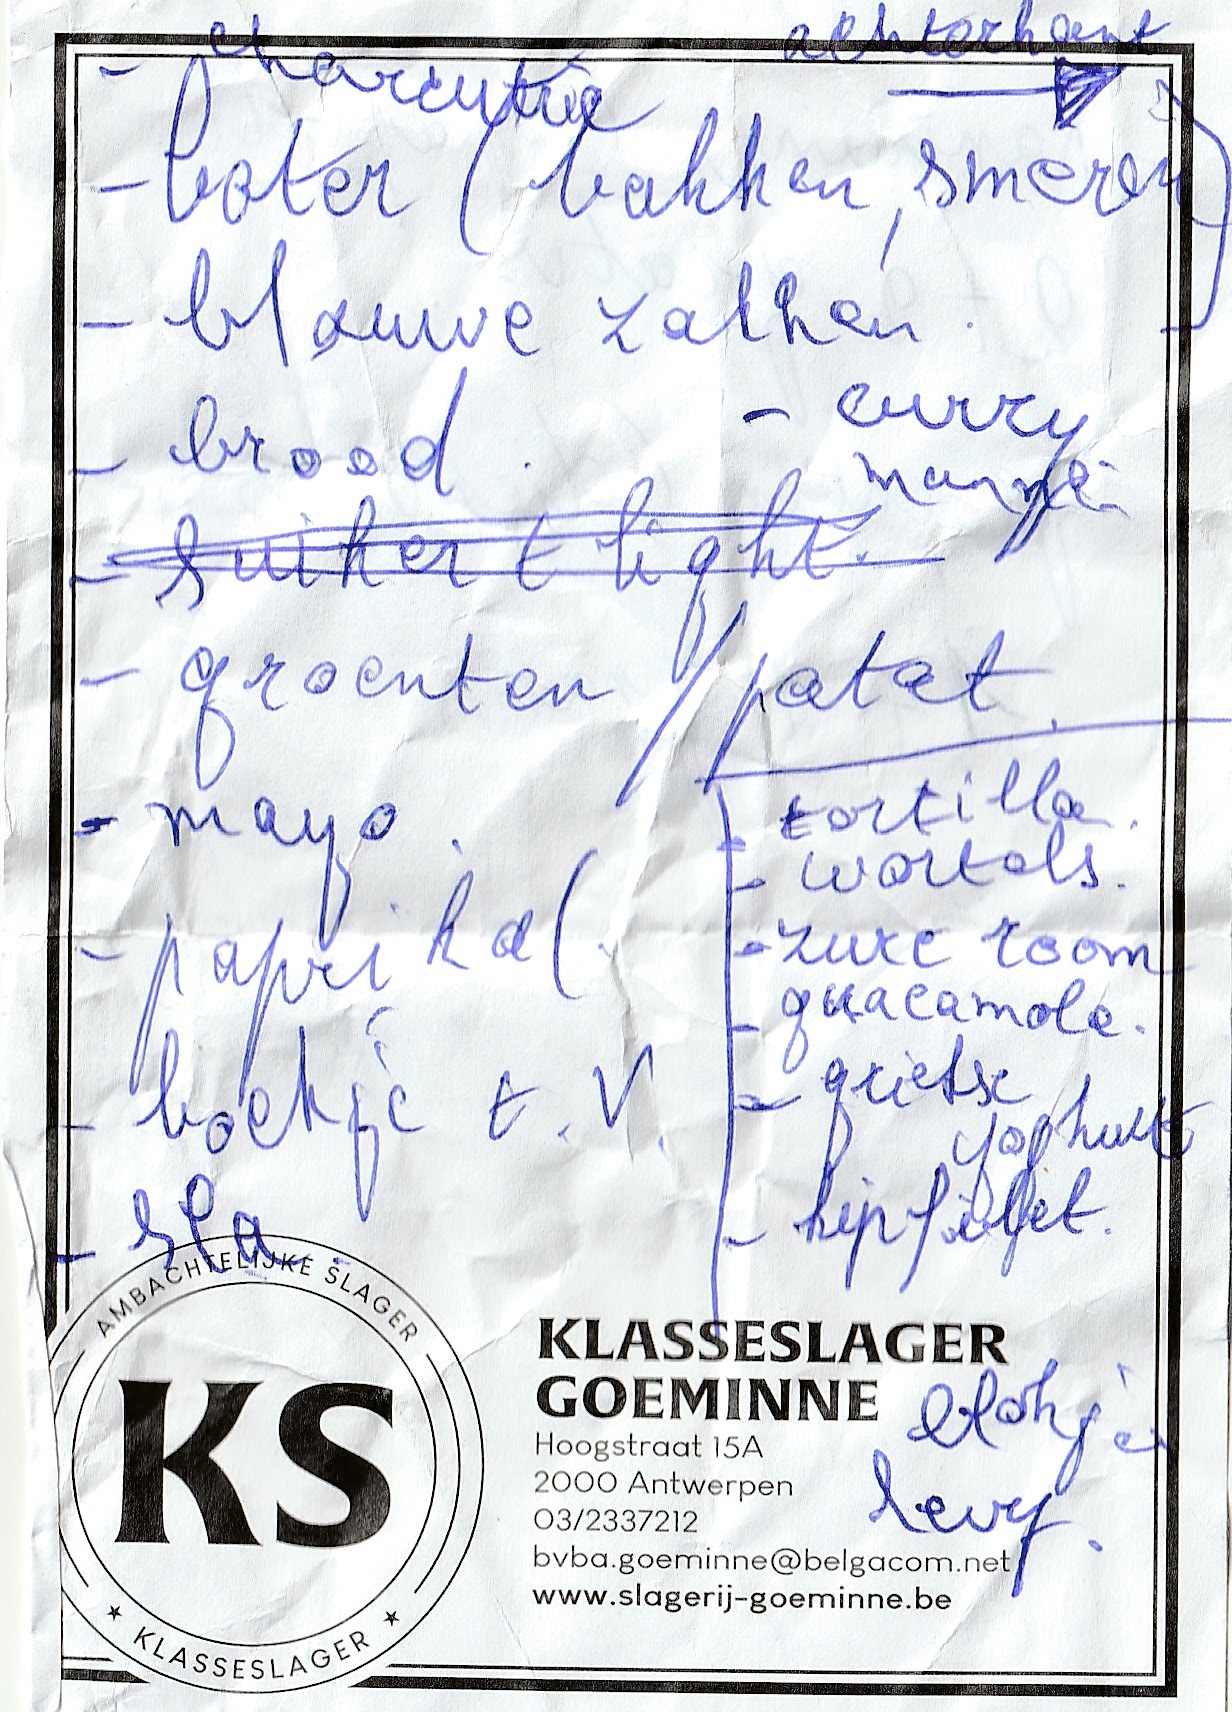 achterkant
- charcutrie
- boter (bakken, smeren)
- blauwe zakken.
- brood.
- curry
mannen
- suiker (light.
- groenten / patat.
- mayo.
- paprika (.
- boekje t.V.
- sla.
- tortilla.
- wortels.
- zure room
- guacamole.
- grietse
yoghurt
- kipfilet.
AMBACHTELIJKE SLAGER
KS
KLASSESLAGER
KLASSESLAGER
GOEMINNE
Hoogstraat 15A
2000 Antwerpen
03/2337212
bvba.goeminne@belgacom.net
www.slagerij-goeminne.be
blokje
Levy.